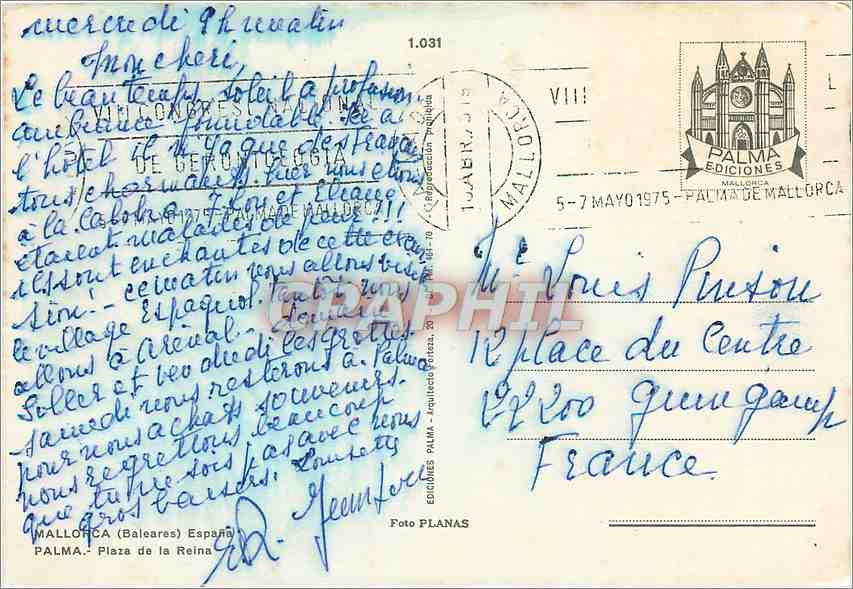 mercredi 9h matin
Mon cheri,
Le beau temps, soleil a profusion
ambiance formidable. Ici a
l'hotel il n'y a que des Français
tous charmants, hier nous étions
à la Calobra. et Eliane
étaient malades de peur?!!
ils sont enchantés de cette excur
sion! - ce matin nous allons visi
le village Espagnol, tantôt nous
allons à Arénal - demain
Soller et vendredi les grottes
samedi nous resterons à Palma
pour nous achats souvenirs.
nous regrettons beaucoup
que tu ne sois pas avec nous
gros baisers.
MALLORCA (Baleares) España
PALMA.- Plaza de la Reina
1.031
EDICIONES PALMA - Arquitecto Forteza, 20
Reproducción prohibida
Foto PLANAS
VIII CONGRESO NACIONAL
DE GERONTOLOGIA
5-7 MAYO 1975 - PALMA DE MALLORCA
MALLORCA
VIII
L
5-7 MAYO 1975 - PALMA DE MALLORCA
PALMA
EDICIONES
MALLORCA
Mr Louis Pinson
12 place du Centre
22200 Guingamp
France
CPAPHIL